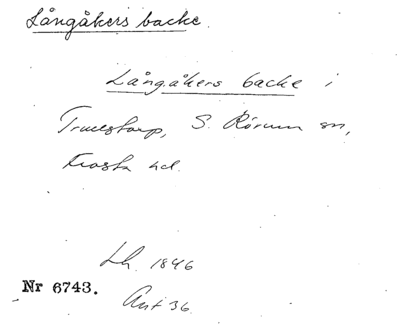 Långåkers backe.
Långåkers backe i
Truelstorp, S. Rörum sn,
Frosta hd.
Lh. 1846
Nr 6743.
Ant 36.